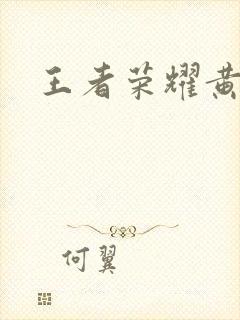 王者荣耀黄
何翼